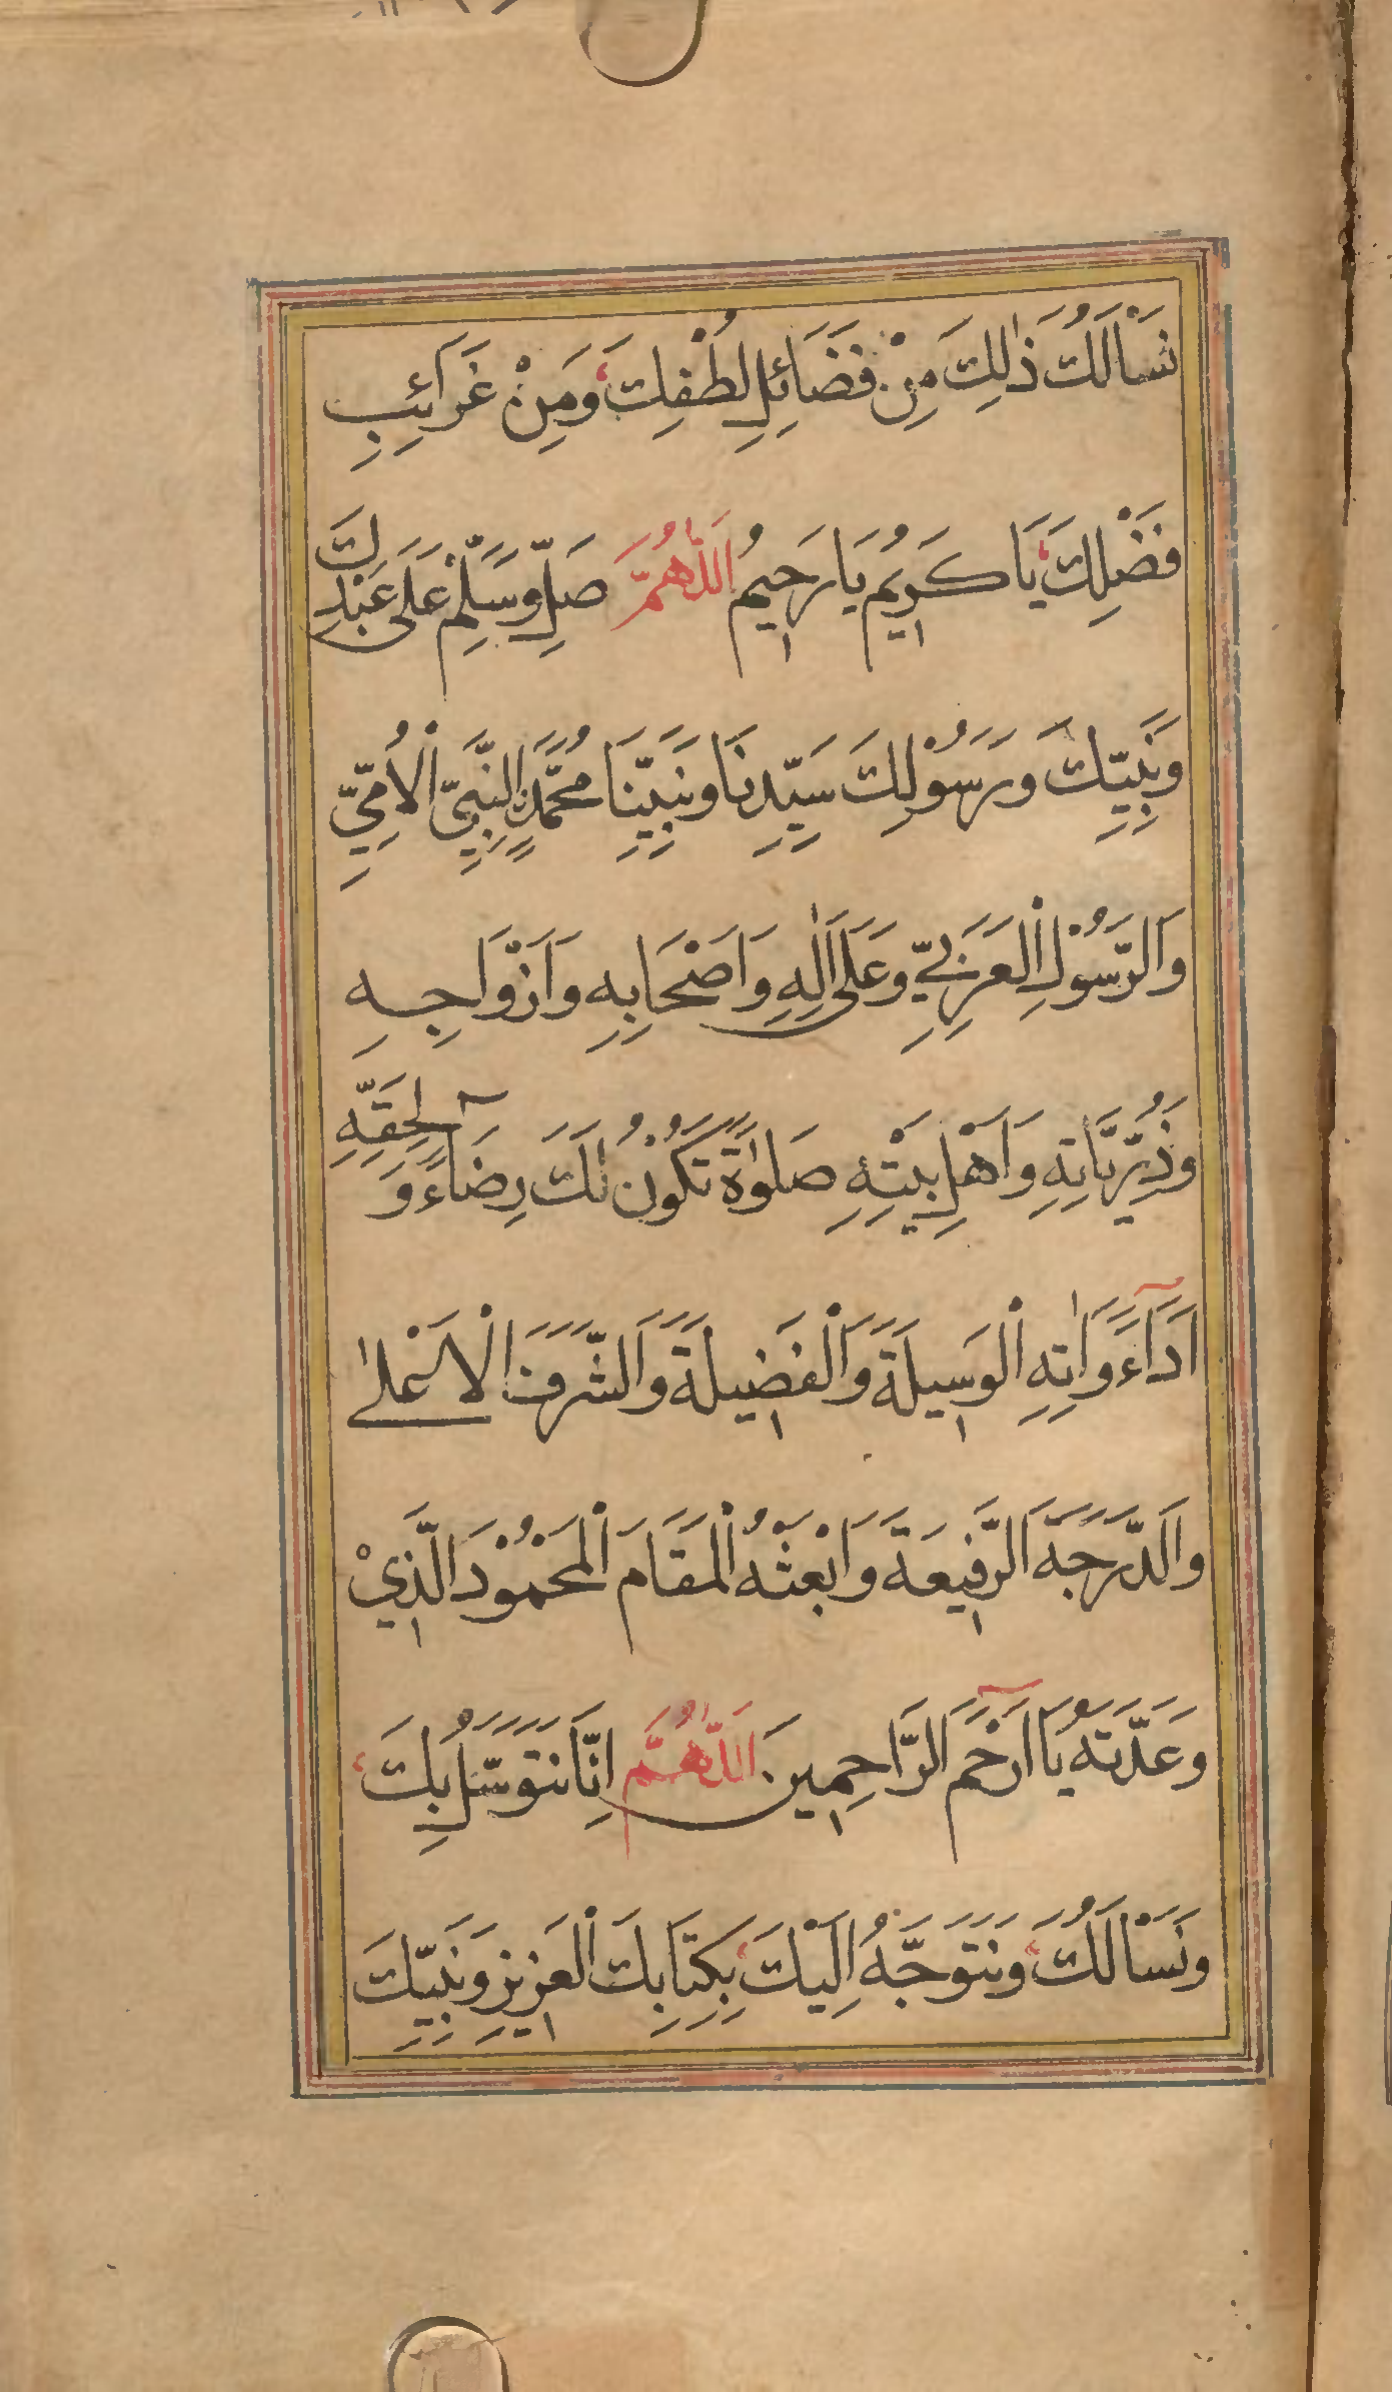 نَسْأَلُكَ ذٰلِكَ مِنْ فَضَائِلِ لُطْفِكَ وَمِنْ غَرَائِبِ
فَضْلِكَ يَا كَرِيمُ يَا رَحِيمُ اَللّٰهُمَّ صَلِّ وَسَلِّمْ عَلَى عَبْدِكَ
وَنَبِيِّكَ وَرَسُوْلِكَ سَيِّدِنَا وَنَبِيِّنَا مُحَمَّدٍ النَّبِيِّ الْاُمِّيِّ
وَالرَّسُوْلِ الْعَرَبِيِّ وَعَلَى اٰلِهِ وَاَصْحَابِهِ وَاَزْوَاجِهِ
وَذُرِّيَّاتِهِ وَاَهْلِ بَيْتِهِ صَلٰوةً تَكُوْنُ لَكَ رِضَاءً وَلِحَقِّهِ
اَدَاءً وَاٰتِهِ الْوَسِيلَةَ وَالْفَضِيلَةَ وَالشَّرَفَ الْاَعْلٰى
وَالدَّرَجَةَ الرَّفِيعَةَ وَابْعَثْهُ الْمَقَامَ الْمَحْمُوْدَ الَّذِيْ
وَعَدْتَهُ يَا اَرْحَمَ الرَّاحِمِينَ اَللّٰهُمَّ اِنَّا نَتَوَسَّلُ بِكَ
وَنَسْأَلُكَ وَنَتَوَجَّهُ اِلَيْكَ بِكِتَابِكَ الْعَزِيزِ وَنَبِيِّكَ